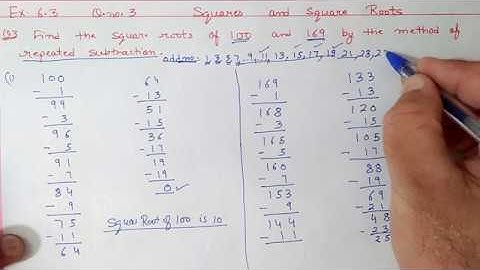 Ex 6.3 Q.no.3 Squares and Square Roots
Q3 Find the square roots of 100 and 169 by the method of
repeated subtraction. odd no: 1, 3, 5, 7, 9, 11, 13, 15, 17, 19, 21, 23, 2
(i)
100
- 1
99
- 3
96
- 5
91
- 7
84
- 9
75
- 11
64
64
- 13
51
- 15
36
- 17
19
- 19
0 ✓
Square Root of 100 is 10
169
- 1
168
- 3
165
- 5
160
- 7
153
- 9
144
- 11
133
- 13
120
- 15
105
- 17
88
- 19
69
- 21
48
- 23
25